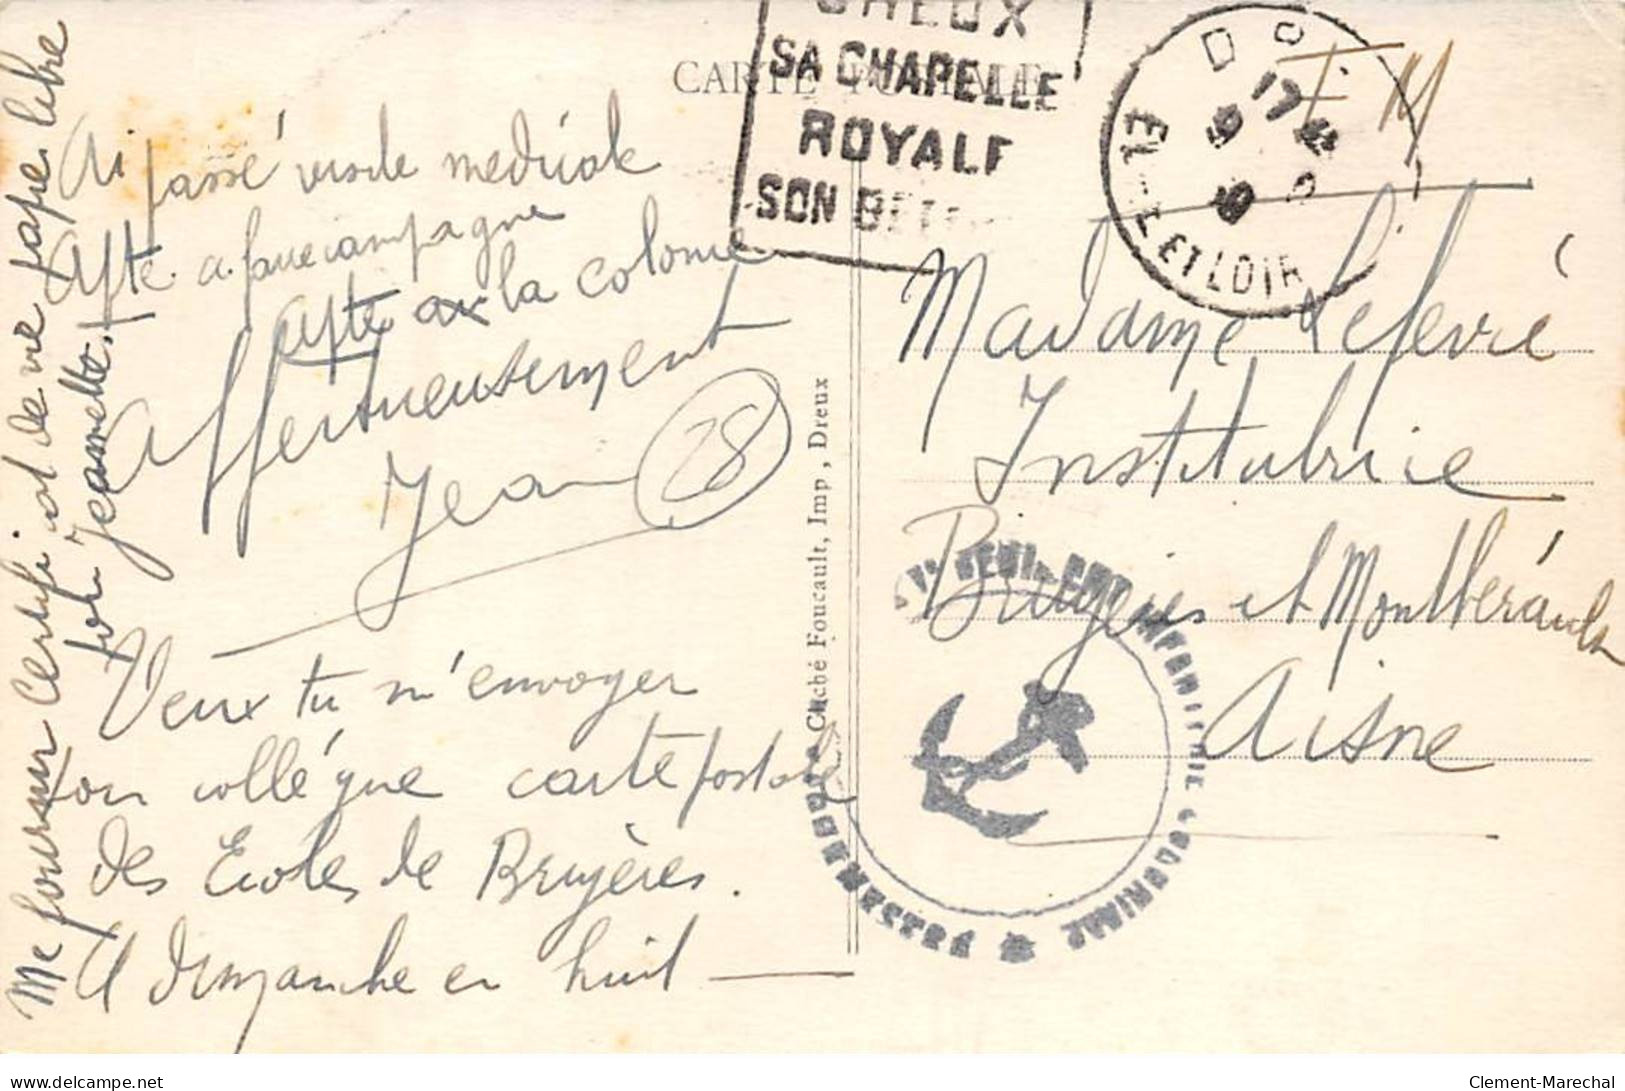 CARTE POSTALE
DREUX
SA CHAPELLE
ROYALE
SON BEFF
17
9
EURE-ET-LOIR
F M
Ai passé visite médicale
Apte a faire campagne
Apte aux la colonie
Affectueusement
Jean
28
Veux tu m'envoyer
ton collègue carte postale
des Ecoles de Bruyères.
A dimanche en huit
Me fournir certificat de vie papier libre
pour Jeannette.
Cliché Foucault, Imp, Dreux
Madame Lefevré
Institutrice
Bruyères et Montbérault
Aisne
INFANTERIE COLONIALE
delcampe.net
Clement-Marechal